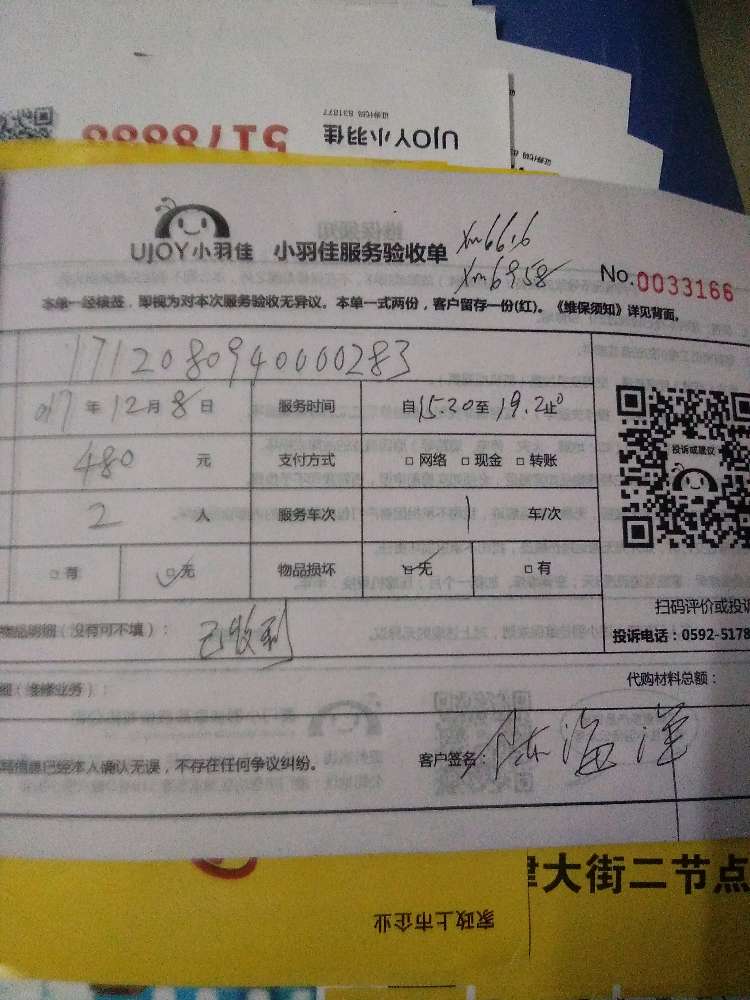 证券代码 831877
UJOY小羽佳
5178888
UJOY小羽佳 小羽佳服务验收单
xm6616
xm6958
No.0033166
本单一经核签，即视为对本次服务验收无异议。本单一式两份，客户留存一份(红)。《维保须知》详见背面。
1712080940000283
017年12月8日 服务时间 自15.20至19.20止
480 元 支付方式 □网络 □现金 □转账
2 人 服务车次 1 车/次
□有 □无 物品损坏 □无 □有
投诉或建议
扫码评价或投诉
物品明细（没有可不填）： 已收到
投诉电话：0592-5178
细（维修业务）： 代购材料总额：
写信息已经本人确认无误，不存在任何争议纠纷。 客户签名：陈海洋
大街二节点
家政上市企业